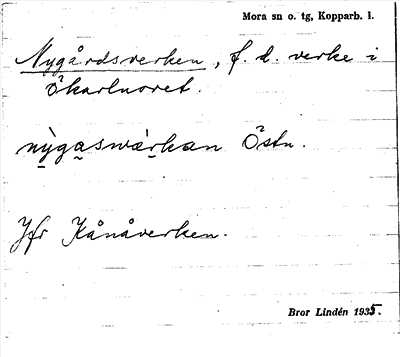 Mora sn o. tg, Kopparb. l.
Nygårdsverken, f. d. verke i
Ökarlnoret.
nỳgaswàrkan Östn.
Jfr Kånåverken.
Bror Lindén 1935.